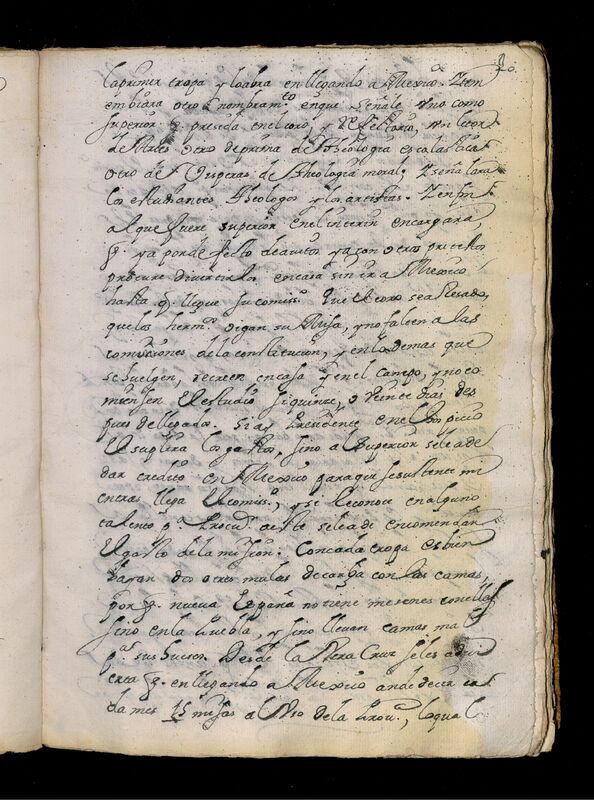 la primer tropa y los abra en llegando a Mexico. Tien
embiara otro nombram.to en que señale uno como
superior q. presida en el coro, y Refectorio, un lector
de Artes otro de prima de Theologia escolastica
otro de Visperas de Theologia moral; y señalara
los estudiantes Theologos y los artistas. Y en fin
al que fuere superior en el interin encargara,
q. ya por defecto de avitos ya con otros pretextos
procure divertirlos en casa sin ir a Mexico
hasta q. llegue su comiss.o Que el coro sea Resado,
que los herm.s oigan su Misa, y no falten a las
comuniones de la constitucion, y en lo demas que
se huelgen, recreen en casa y en el campo, y no co
miensen el estudio si quinze, o veinte dias des
pues de llegada. Si ay Presidente en el Ospicio
el suplira los gastos, sino al superior se le a de
dar credito en Mexico para que sustente mi
entras llega el comiss.o, y si Reconoce en alguno
talento p.a Procu.r a este se le a de encomendar
el gasto de la mision. Con cada tropa es bien
vayan dos o tres mulas de carga con las camas,
por q. nueva España no tiene mesones con ellas
sino en la Puebla, y sino llevan camas ma
p.a sus huesos. Desde la Vera Cruz se les advi
erta q. en llegando a Mexico an de decir ca
da mes 15 misas al Pio de la Prov.a, lo qual